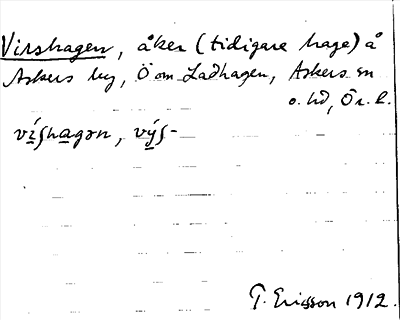 Virshagen, åker (tidigare hage) å
Askers by, Ö om Ladhagen, Askers sn
o. hd, Ör. l.
víʃhagən, výʃ-
T. Ericsson 1912.